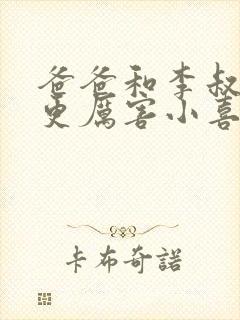 爸爸和李叔
更厲害小喜
卡布奇諾